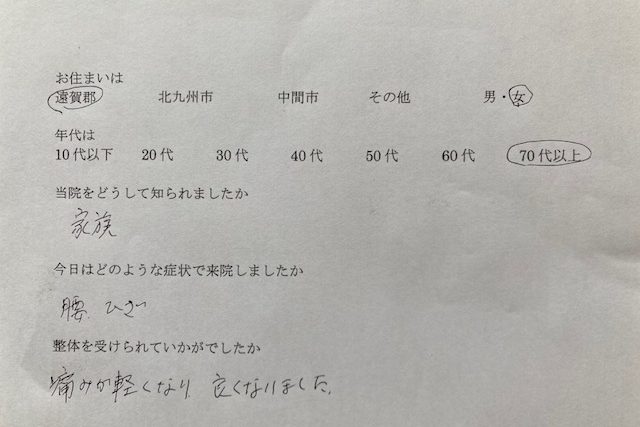 お住まいは
遠賀郡 北九州市 中間市 その他 男・女
年代は
10代以下 20代 30代 40代 50代 60代 70代以上
当院をどうして知られましたか
家族
今日はどのような症状で来院しましたか
腰 ひざ
整体を受けられていかがでしたか
痛みが軽くなり 良くなりました。